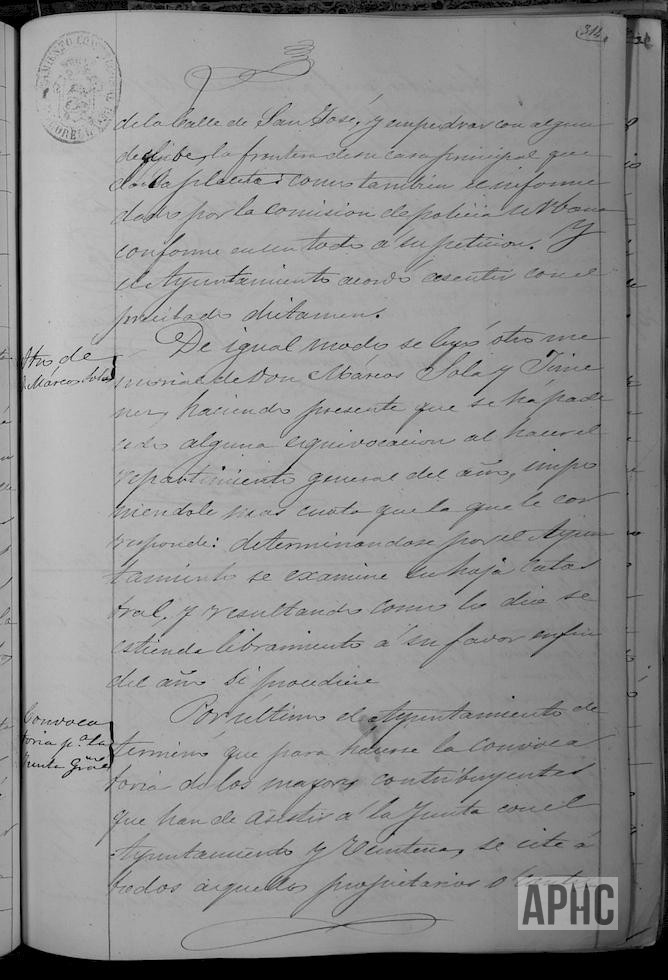 314
de la Calle de San José, y empedrar con algun
declibe, la frontera de su casa principal que
da a la placeta: como tambien el informe
dado por la Comision de policia urbana
conforme en un todo á su peticion. Y
el Ayuntamiento acordó asentir con el
precitado dictamen.
Otro de
D. Márcos Sola
De igual modo se leyó otro me
morial de Don Márcos Sola y Jime
nez, haciendo presente que se há pade
cido alguna equivocacion al hacer el
repartimiento general del año, impo
niendole mas cuota que la que le cor
responde: determinandose por el Ayun
tamiento se examine su hoja catas
tral, y resultando como lo dice se
estienda libramiento á su favor en fin
del año si procediere
Convoca
toria pª la
Junta Gral
Por último el Ayuntamiento de
terminó que para hacerse la convoca
toria de los mayores contribuyentes
que han de asistir á la Junta con el
Ayuntamiento y Veintena, se cite á
todos aquellos propietarios
APHC